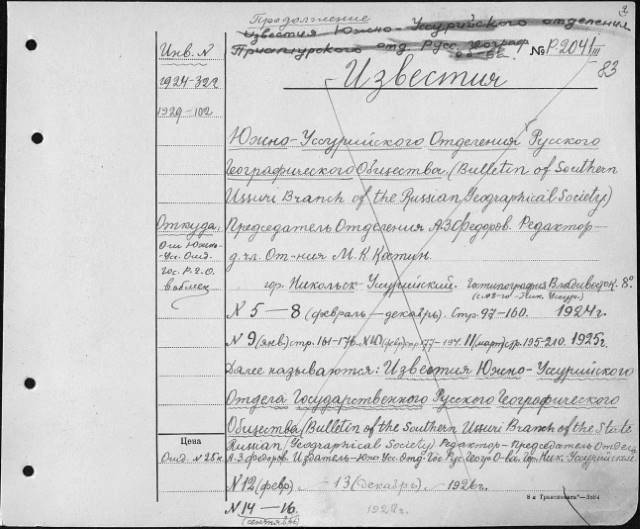 2
Продолжение
Известия Южно-Уссурийского отделения
Приамурского отд. Русс. Географ.
№ Р.2041/III
83
Инв. N
Известия
1924-322
1929-102
Южно-Уссурийского Отделения Русского
Географического Общества. (Bulletin of Southern
Ussuri Branch of the Russian Geographical Society)
Откуда:
Председатель Отделения А.З.Федоров. Редактор-
д. чл. От-ния М.К.
гор. Никольск-Уссурийский. Гостипография Владивосток. 8°
N 5 — 8 (февраль — декабрь). Стр. 97-160. 1924г.
N 9 (янв) стр. 161-176. N10 (фев) стр. 177-194. 11 (март) стр. 195-210. 1925г.
Далее называются: Известия Южно-Уссурийского
Отдела Государственного Русского Географического
Общества (Bulletin of the Southern Ussuri Branch of the State
Цена
Russian Geographical Society) Редактор-Председатель Отдела
А.З.Федоров. Издатель-Южо-Усс. Отд. Гос. Рус. Геогр. О-ва. Гор. Ник. Уссурийский
N 12 (февр) — 13 (декабрь). 1926г.
N 14 — 16.